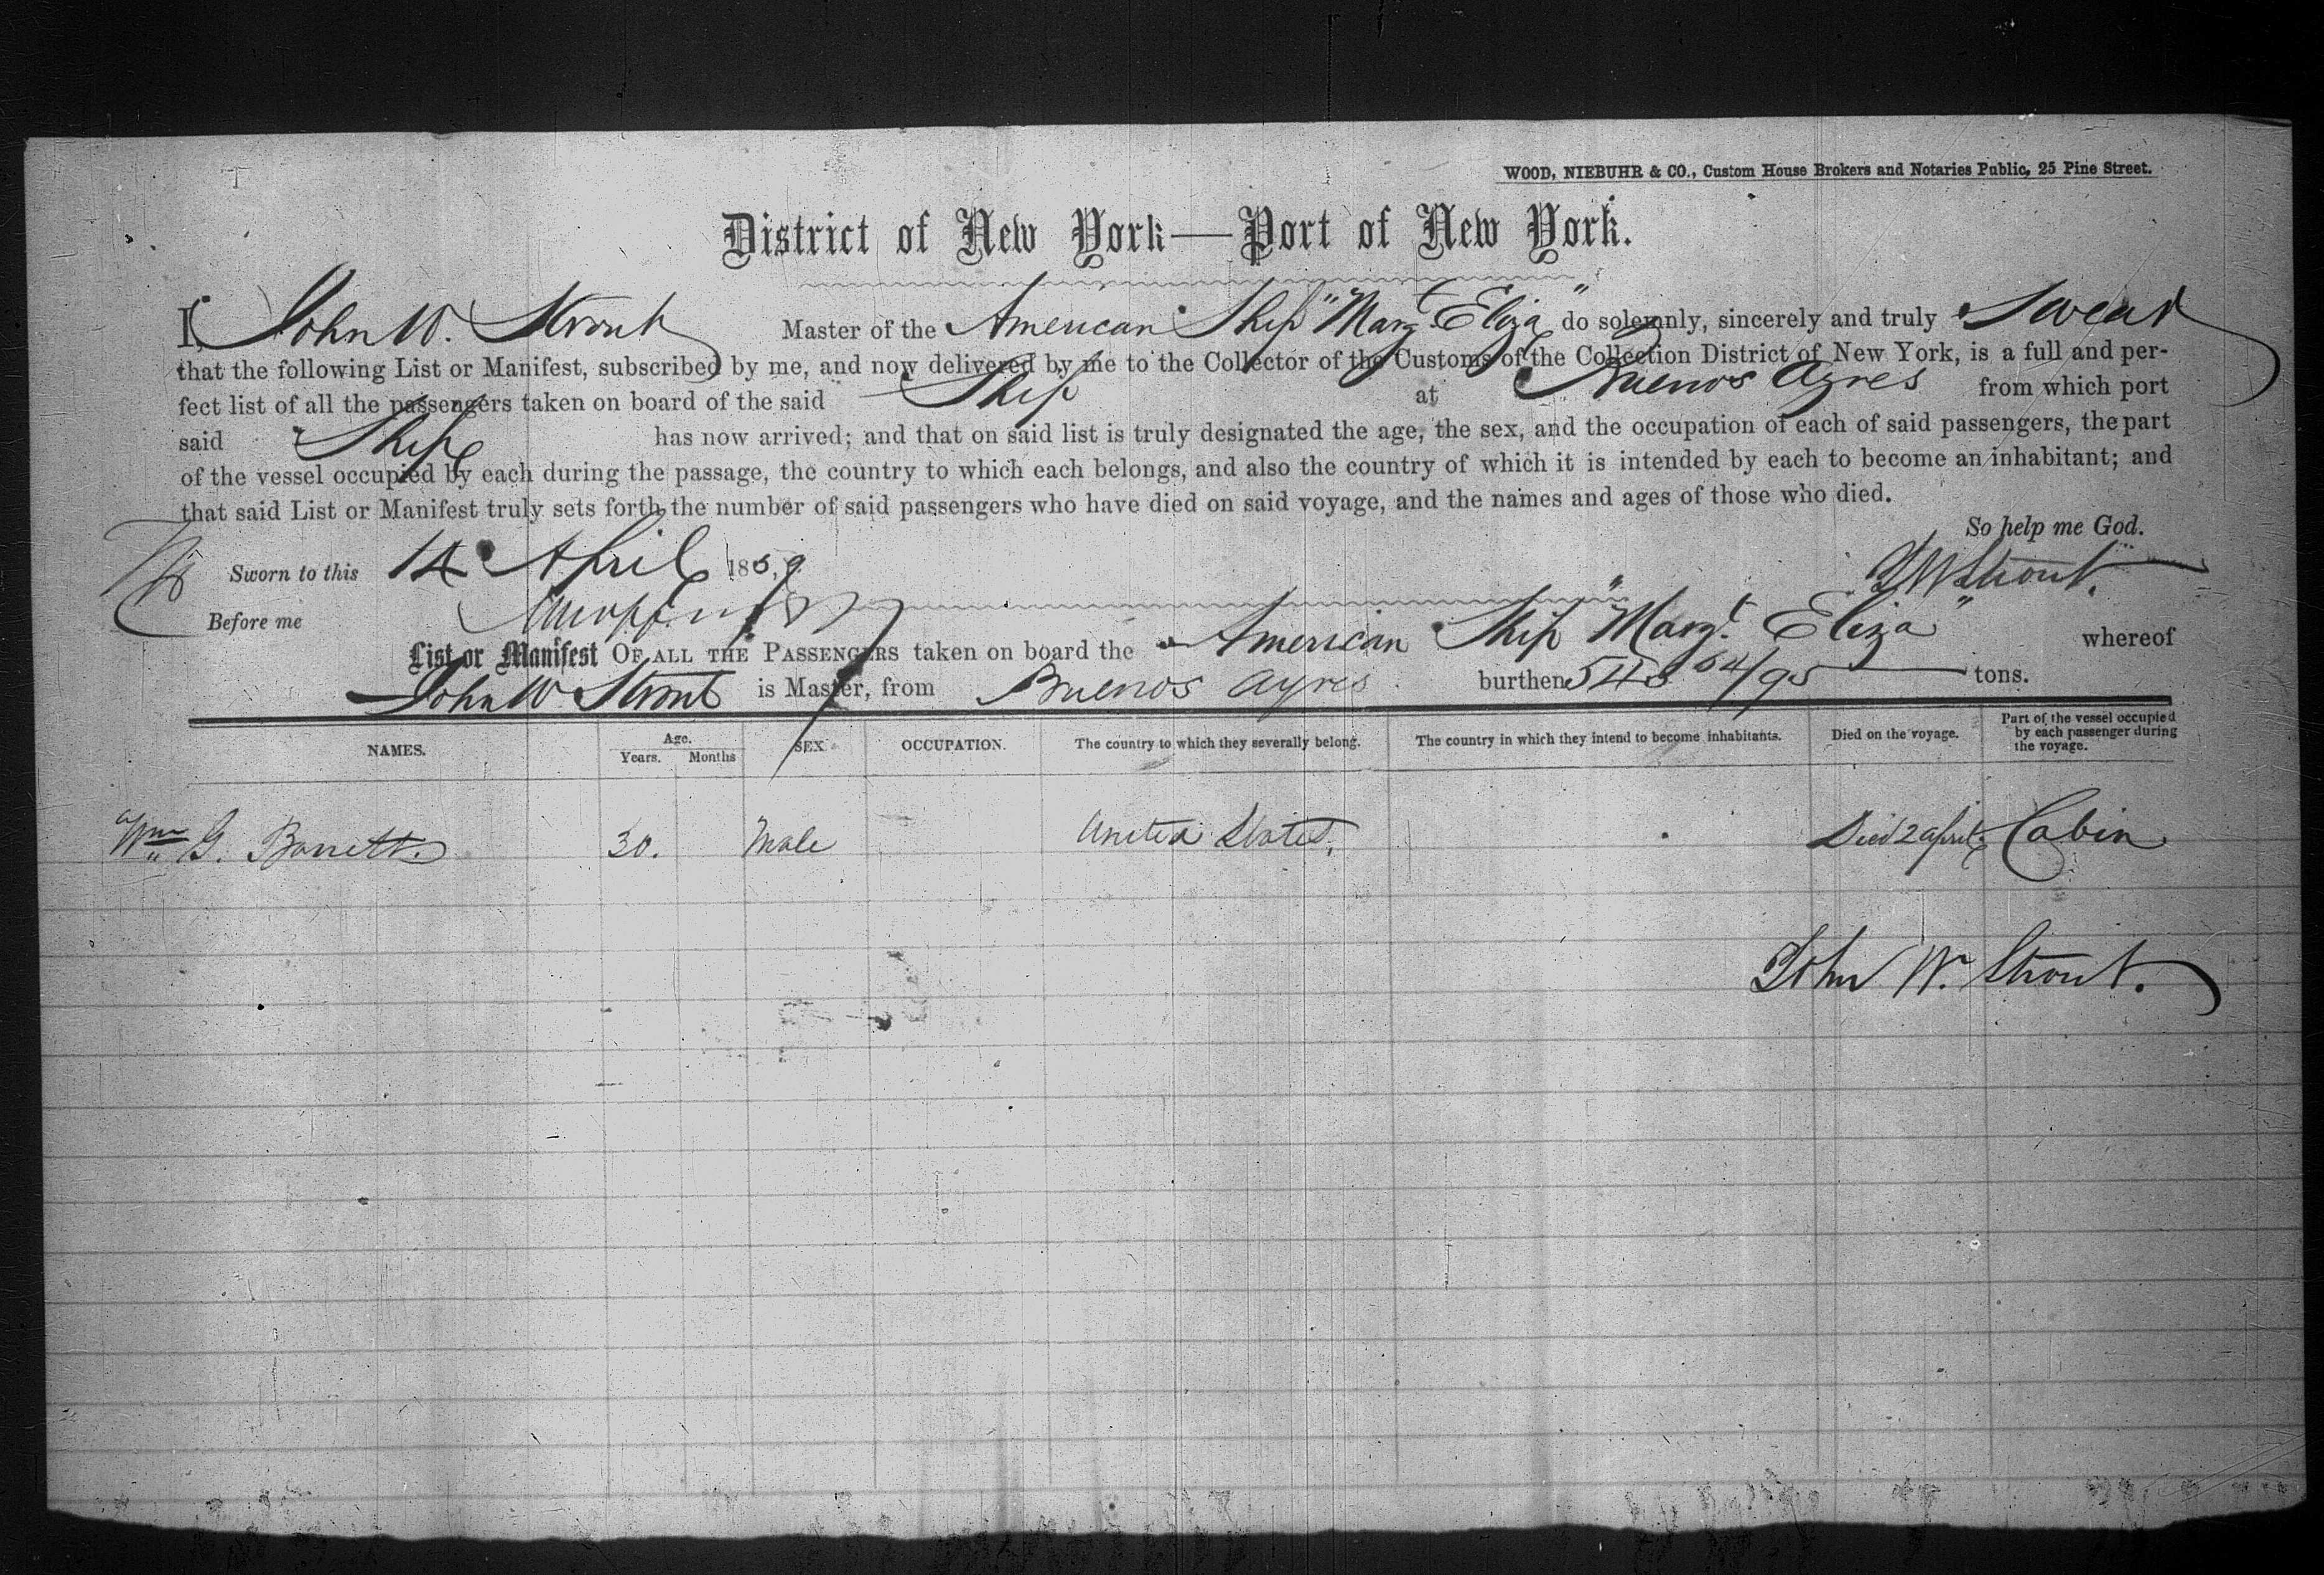 WOOD, NIEBUHR & CO., Custom House Brokers and Notaries Public, 25 Pine Street.
District of New York—Port of New York.
I, John W. Strout Master of the American Ship "Margt Eliza" do solemnly, sincerely and truly Swear
that the following List or Manifest, subscribed by me, and now delivered by me to the Collector of the Customs of the Collection District of New York, is a full and per-
fect list of all the passengers taken on board of the said Ship at Buenos Ayres from which port
said Ship has now arrived; and that on said list is truly designated the age, the sex, and the occupation of each of said passengers, the part
of the vessel occupied by each during the passage, the country to which each belongs, and also the country of which it is intended by each to become an inhabitant; and
that said List or Manifest truly sets forth the number of said passengers who have died on said voyage, and the names and ages of those who died.
So help me God.
Sworn to this 14 April 1859 J W Strout.
Before me
List or Manifest OF ALL THE PASSENGERS taken on board the American Ship "Margt. Eliza" whereof
John W Strout is Master, from Buenos Ayres burthen 54/95 tons.
NAMES. Age. Years. Months SEX. OCCUPATION. The country to which they severally belong. The country in which they intend to become inhabitants. Died on the voyage. Part of the vessel occupied by each passenger during the voyage.
Wm G. Barrett. 30. Male United States. Died 2 april Cabin
John W. Strout.